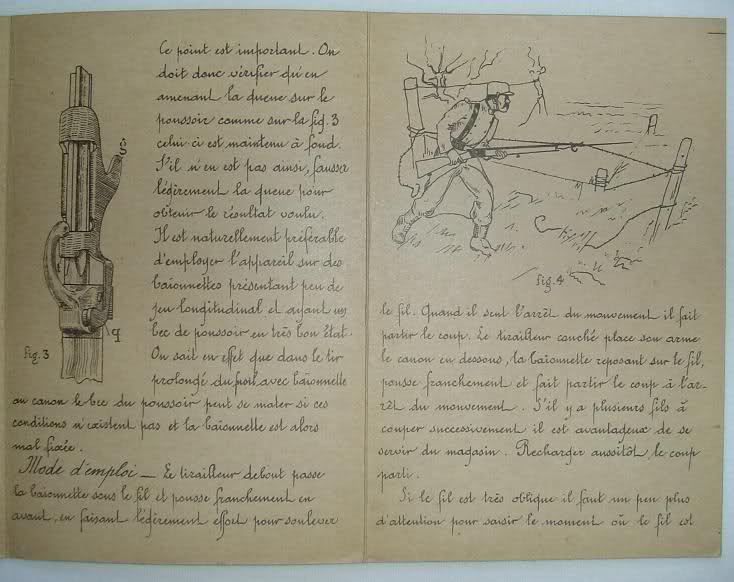 Ce point est important. On
doit donc vérifier qu'en
amenant la queue sur le
poussoir comme sur la fig. 3
celui-ci est maintenu à fond.
S'il n'en est pas ainsi, fausser
légèrement la queue pour
obtenir le résultat voulu.
Il est naturellement préférable
d'employer l'appareil sur des
baïonnettes présentant peu de
jeu longitudinal et ayant un
bec de poussoir en très bon état.
On sait en effet que dans le tir
prolongé du fusil avec baïonnette
au canon le bec du poussoir peut se mater si ces
conditions n'existent pas et la baïonnette est alors
mal fixée.
Mode d'emploi — Le tirailleur debout passe
la baïonnette sous le fil et pousse franchement en
avant, en faisant légèrement effort pour soulever
fig. 3
q
fig. 4
le fil. Quand il sent l'arrêt du mouvement il fait
partir le coup. Le tirailleur couché place son arme
le canon en dessous, la baïonnette reposant sur le fil,
pousse franchement et fait partir le coup à l'ar-
rêt du mouvement. S'il y a plusieurs fils à
couper successivement il est avantageux de se
servir du magasin. Recharger aussitôt, le coup
parti.
Si le fil est très oblique il faut un peu plus
d'attention pour saisir le moment où le fil est